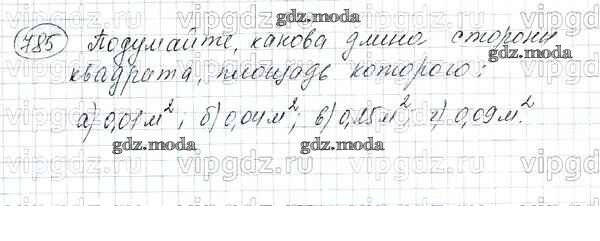 785 Подумайте, какова длина стороны
квадрата, площадь которого:
а) 0,01 м²; б) 0,04 м²; в) 0,25 м² г) 0,09 м².
gdz.moda
gdz.moda
gdz.moda
gdz.moda
gdz.moda
vipgdz.ru vipgdz.ru vipgdz.ru vipgdz.ru